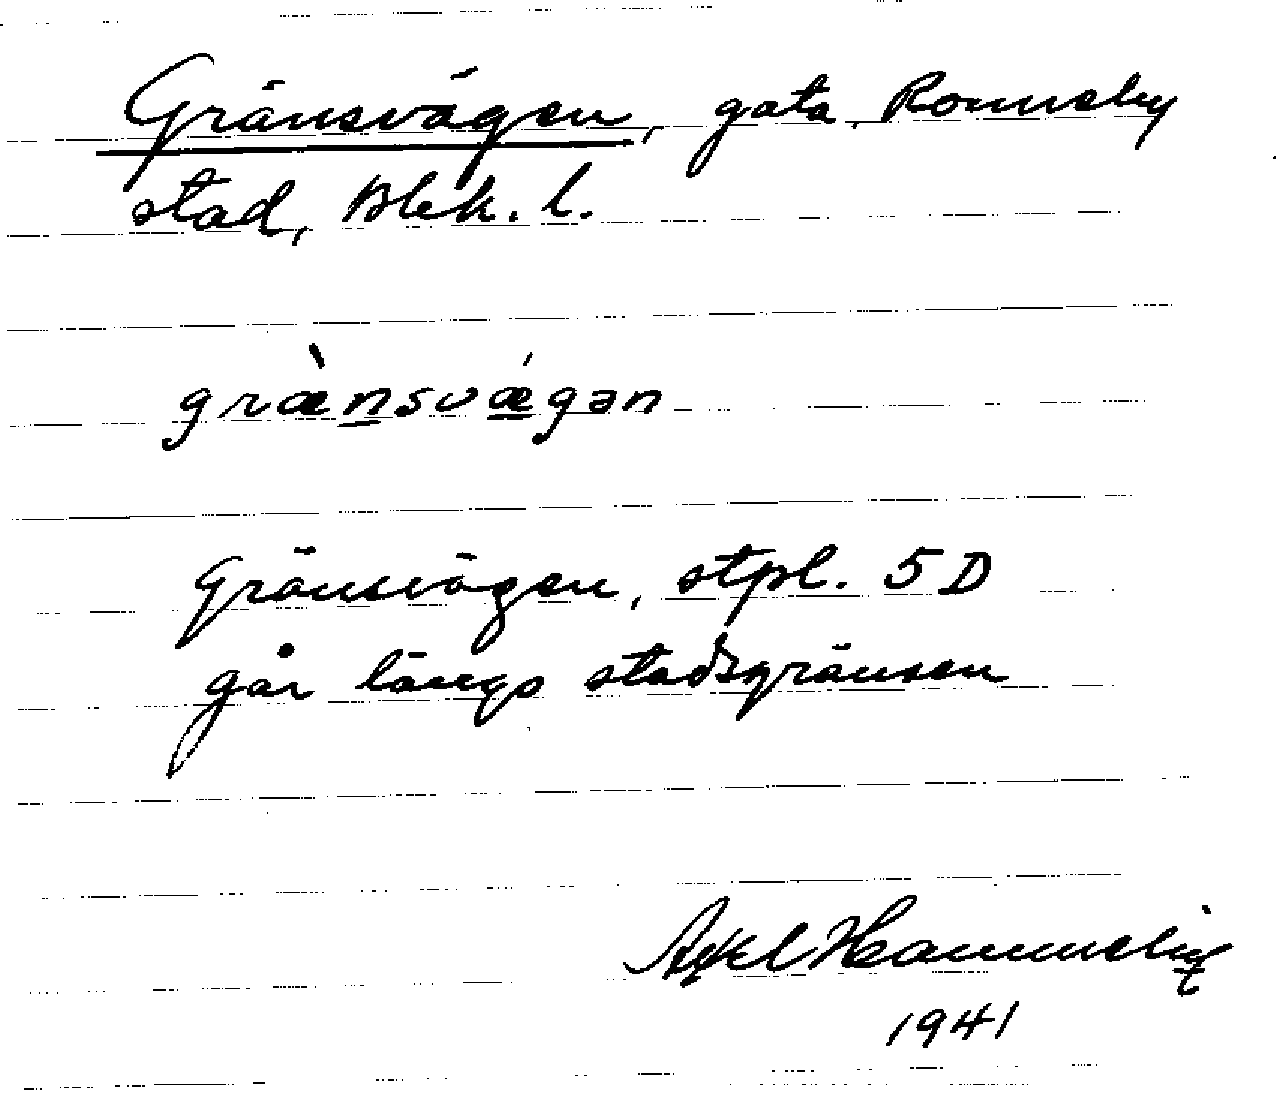 Gränsvägen, gata, Ronneby
stad, Blek. l.
græ̀nsvǽgən
Gränsvägen, stpl. 5 D
går längs stadsgränsen
Axel
1941